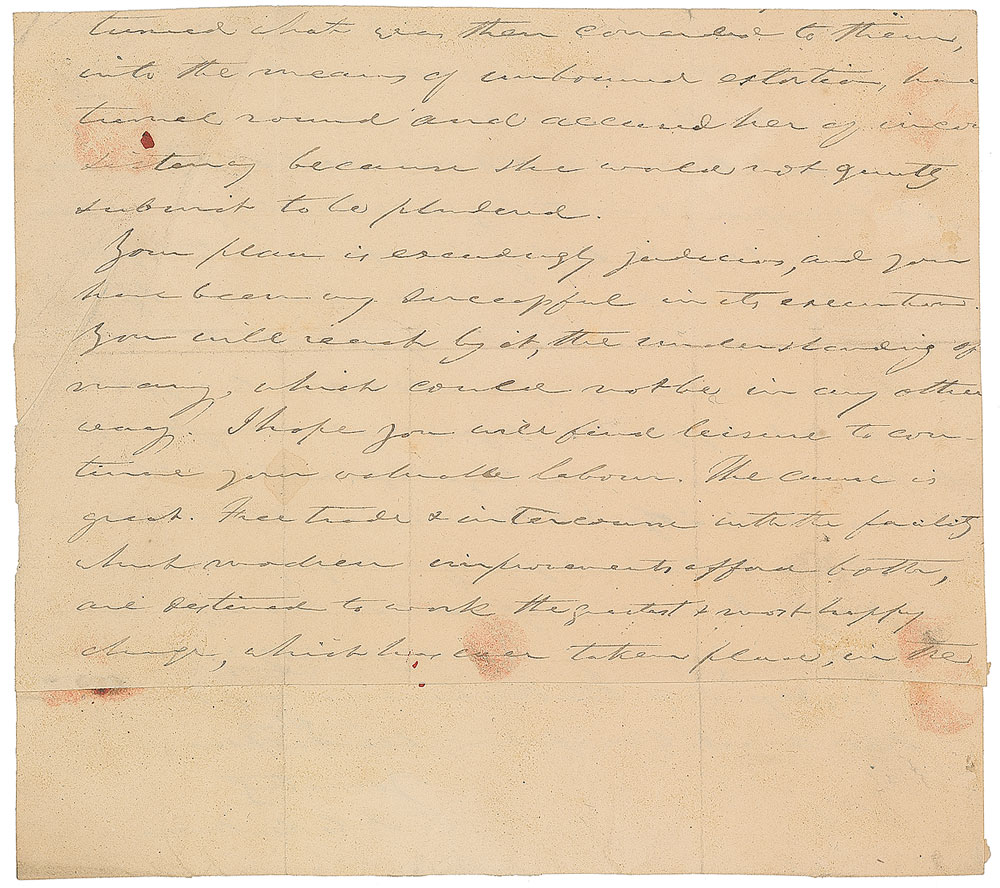 turned what was then conceded to them,
into the means of unbound extortion, have
turned round and accused her of incon
sistency because she would not quietly
submit to be plundered.
Your plan is exceedingly judicious, and you
have been very successful in its execution.
You will reach by it, the understanding of
many, which could not be in any other
way. I hope you will find leisure to con-
tinue your valuable labour. The cause is
great. Free trade & intercourse with the facility
which modern improvements afford both,
are destined to work the greatest & most happy
change, which has ever taken place, in the